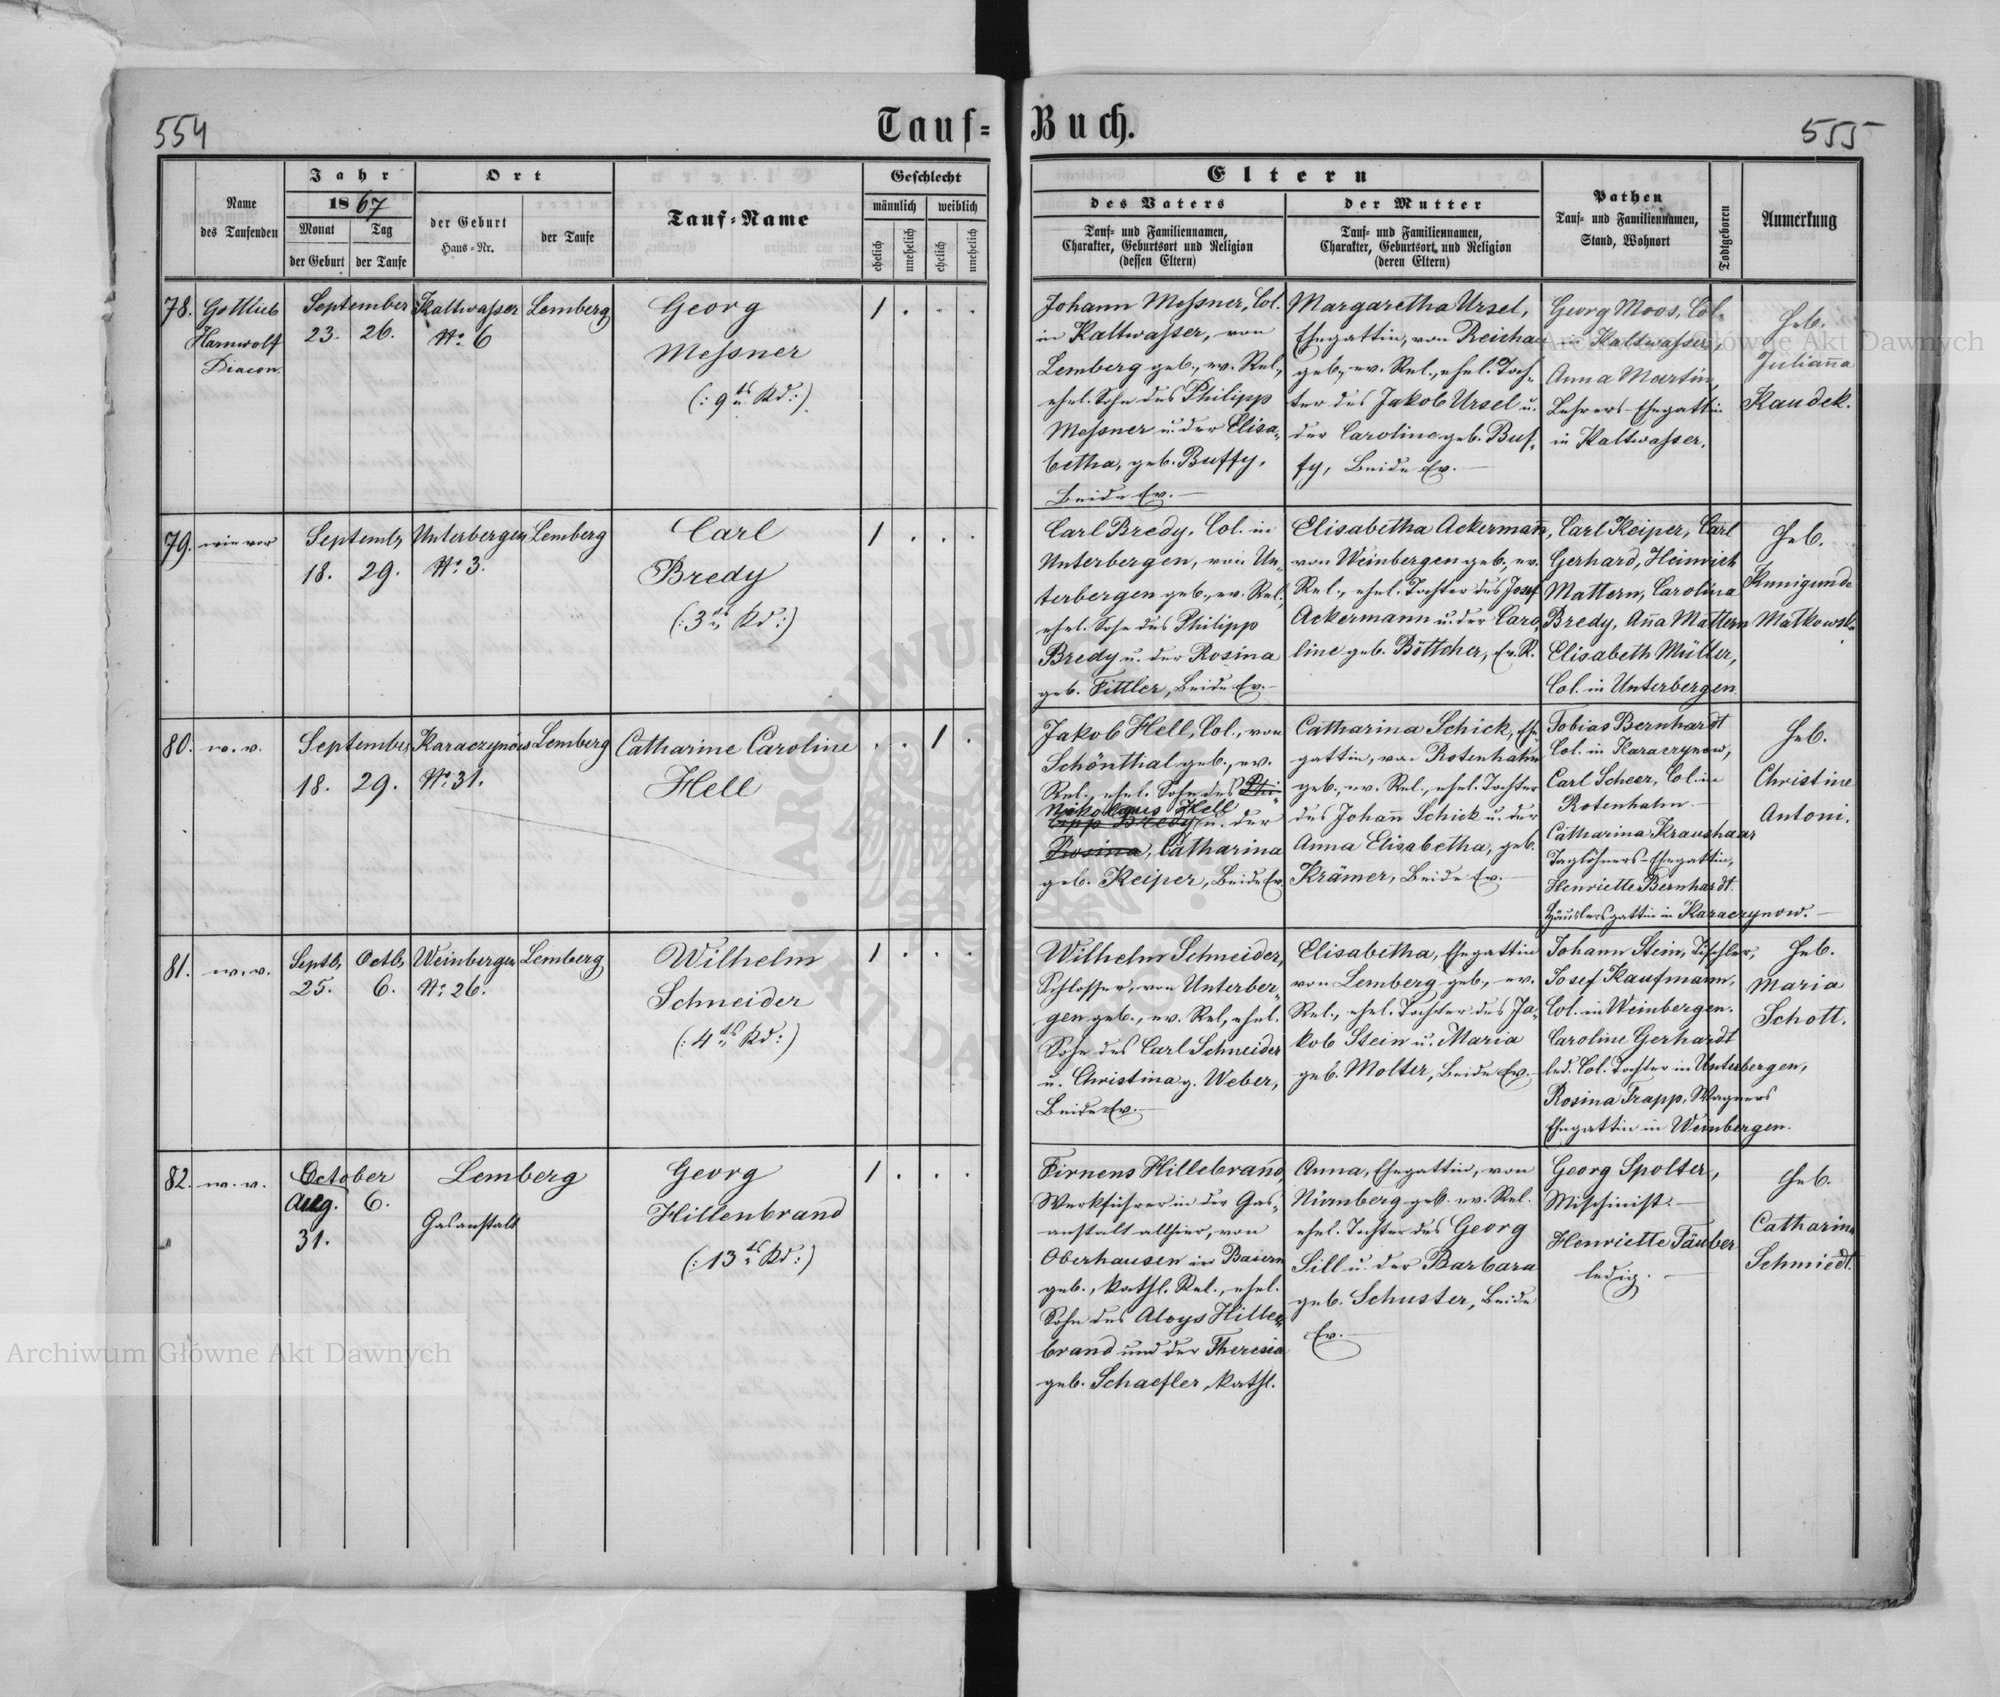 554
Tauf=
Buch.
555
Name
des Taufenden
Jahr
1867
Monat
Tag
der Geburt
der Taufe
Ort
der Geburt
Haus=Nr.
der Taufe
Tauf=Name
Geschlecht
männlich
weiblich
ehelich
unehelich
ehelich
unehelich
Eltern
des Vaters
Tauf= und Familiennamen,
Charakter, Geburtsort und Religion
(dessen Eltern)
der Mutter
Tauf= und Familiennamen,
Charakter, Geburtsort und Religion
(deren Eltern)
Pathen
Tauf= und Familiennamen,
Stand, Wohnort
Todtgeboren
Anmerkung
78.
Gottlieb
Harnwolf
Diacon.
September
23. 26.
Kaltwasser
No. 6
Lemberg
Georg
Messner
(: 9tes Kd :)
1 . . .
Johann Messner, Col.
in Kaltwasser, von
Lemberg geb., ev. Rel.,
ehel. Sohn des Philipp
Messner u. der Elisa=
betha, geb. Buffy,
Beide Ev. —
Margaretha Ursel,
Ehegattin, von Reichau
geb., ev. Rel., ehel. Toch=
ter des Jakob Ursel u.
der Caroline geb. Buf=
fy, Beide Ev. —
Georg Moos, Col.
in Kaltwasser,
Anna Martin,
Lehrers-Ehegattin
in Kaltwasser.
Heb.
Julianna
Kaudek.
79.
wie vor
Septembr
18. 29.
Unterbergen
No. 3.
Lemberg
Carl
Bredy
(: 3tes Kd :)
1 . . .
Carl Bredy, Col. in
Unterbergen, von Un=
terbergen geb., ev. Rel.,
ehel. Sohn des Philipp
Bredy u. der Rosina
geb. Fittler, Beide Ev. —
Elisabetha Ackermann,
von Weinbergen geb., ev.
Rel., ehel. Tochter des Josef
Ackermann u. der Caro=
line geb. Böttcher, Ev. R.
Carl Keiper, Carl
Gerhard, Heinrich
Mattern, Carolina
Bredy, Anna Mattern
Elisabeth Müller,
Col. in Unterbergen
Heb.
Kunigunde
Matkowska
80.
w. v.
September
18. 29.
Karaczynów
No. 31.
Lemberg
Catharine Caroline
Hell
. . 1 .
Jakob Hell, Col., von
Schönthal geb., ev.
Rel., ehel. Sohn des Phi=
Nikolaus Hell
lipp Bredy u. der
Rosina, Catharina
geb. Keiper, Beide Ev.
Catharina Schick, Ehe=
gattin, von Rotenhahn
geb., ev. Rel., ehel. Tochter
des Johann Schick u. der
Anna Elisabetha, geb.
Krämer, Beide Ev. —
Tobias Bernhardt
Col. in Karaczynow,
Carl Scheer, Col. in
Rotenhahn —
Catharina Kraushaar
Taglöhners-Ehegattin,
Henriette Bernhardt
Häuslersgattin in Karaczynow. —
Heb.
Christine
Antoni.
81.
w. v.
Septb. Octb.
25. 6.
Weinbergen
No. 26.
Lemberg
Wilhelm
Schneider
(: 4tes Kd :)
1 . . .
Wilhelm Schneider,
Schlosser, von Unterber=
gen geb., ev. Rel., ehel.
Sohn des Carl Schneider
u. Christina g. Weber,
Beide Ev. —
Elisabetha, Ehegattin
von Lemberg geb., ev.
Rel., ehel. Tochter des Ja=
kob Stein u. Maria
geb. Molter, Beide Ev. —
Johann Stein, Tischler,
Josef Kaufmann,
Col. in Weinbergen.
Caroline Gerhardt
led. Col. Tochter in Unterbergen,
Rosina Trapp, Wagners
Ehegattin in Weinbergen.
Heb.
Maria
Schott.
82.
w. v.
October
Aug. 6.
31.
Lemberg
Gasanstalt
Georg
Hillenbrand
(: 13tes Kd :)
1 . . .
Firnens Hillebrand,
Werkführer in der Gas=
anstalt allhier, von
Oberhausen in Baiern
geb., kathl. Rel., ehel.
Sohn des Aloys Hille=
brand und der Theresia
geb. Schaefler, kathl.
Anna, Ehegattin, von
Nürnberg geb. ev. Rel.
ehel. Tochter des Georg
Sill u. der Barbara
geb. Schuster, Beide
Ev. —
Georg Spolter,
Maschinist. —
Henriette Täuber
ledig. —
Heb.
Catharina
Schmiedt.
Archiwum Główne Akt Dawnych
Archiwum Główne Akt Dawnych